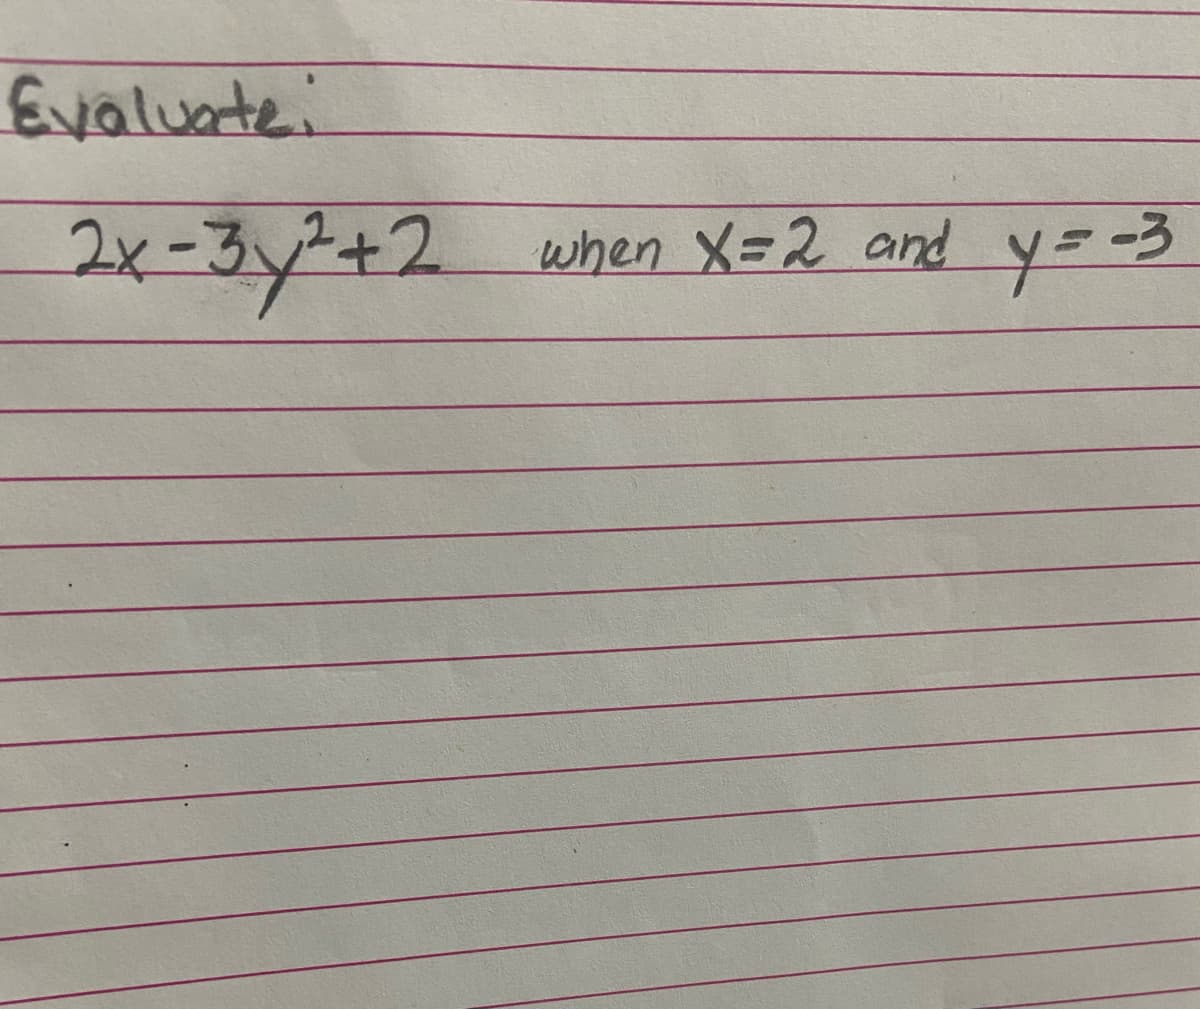 Evaluate:
2x-3y²+2 when x=2 and y=-3